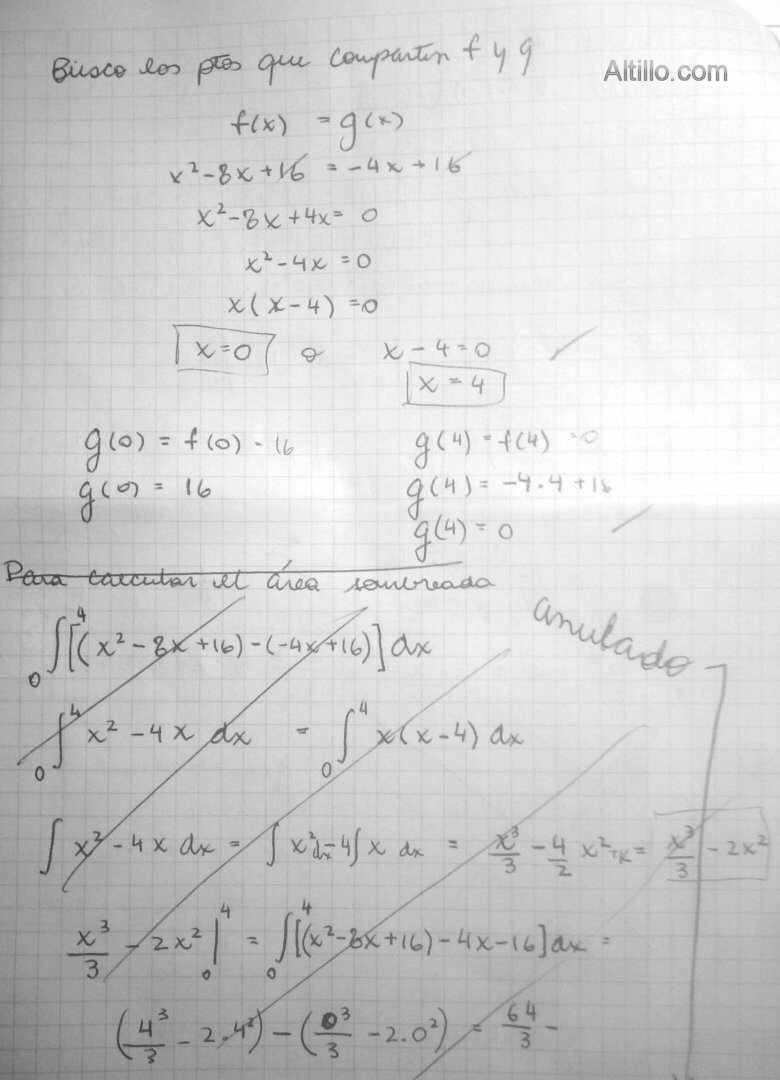 Busco los ptos que comparten f y g
Altillo.com
f(x) = g(x)
x² - 8x + 16 = -4x + 16
x² - 8x + 4x = 0
x² - 4x = 0
x(x - 4) = 0
x = 0 o x - 4 = 0
x = 4
g(0) = f(0) = 16 g(4) = f(4) = 0
g(0) = 16 g(4) = -4.4 + 16
g(4) = 0
Para calcular el área sombreada
anulado
₀∫⁴ [(x² - 8x + 16) - (-4x + 16)] dx
₀∫⁴ x² - 4x dx = ₀∫⁴ x(x - 4) dx
∫ x² - 4x dx = ∫ x² dx - 4∫ x dx = x³/3 - 4/2 x² + K = x³/3 - 2x²
x³/3 - 2x² |₀⁴ = ₀∫⁴ [(x² - 8x + 16) - 4x - 16] dx =
(4³/3 - 2.4²) - (0³/3 - 2.0²) = 64/3 -